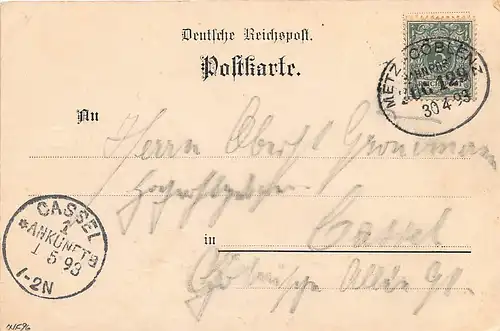 Deutsche Reichspost.
Postkarte.
METZ-COBLENZ
BAHNPOST
129
30 4 93
An
Herrn Oberst
in
Cassel
CASSEL
1
*ANKUNFT*
1 5 93
1-2N
Cölnische Allée 91.